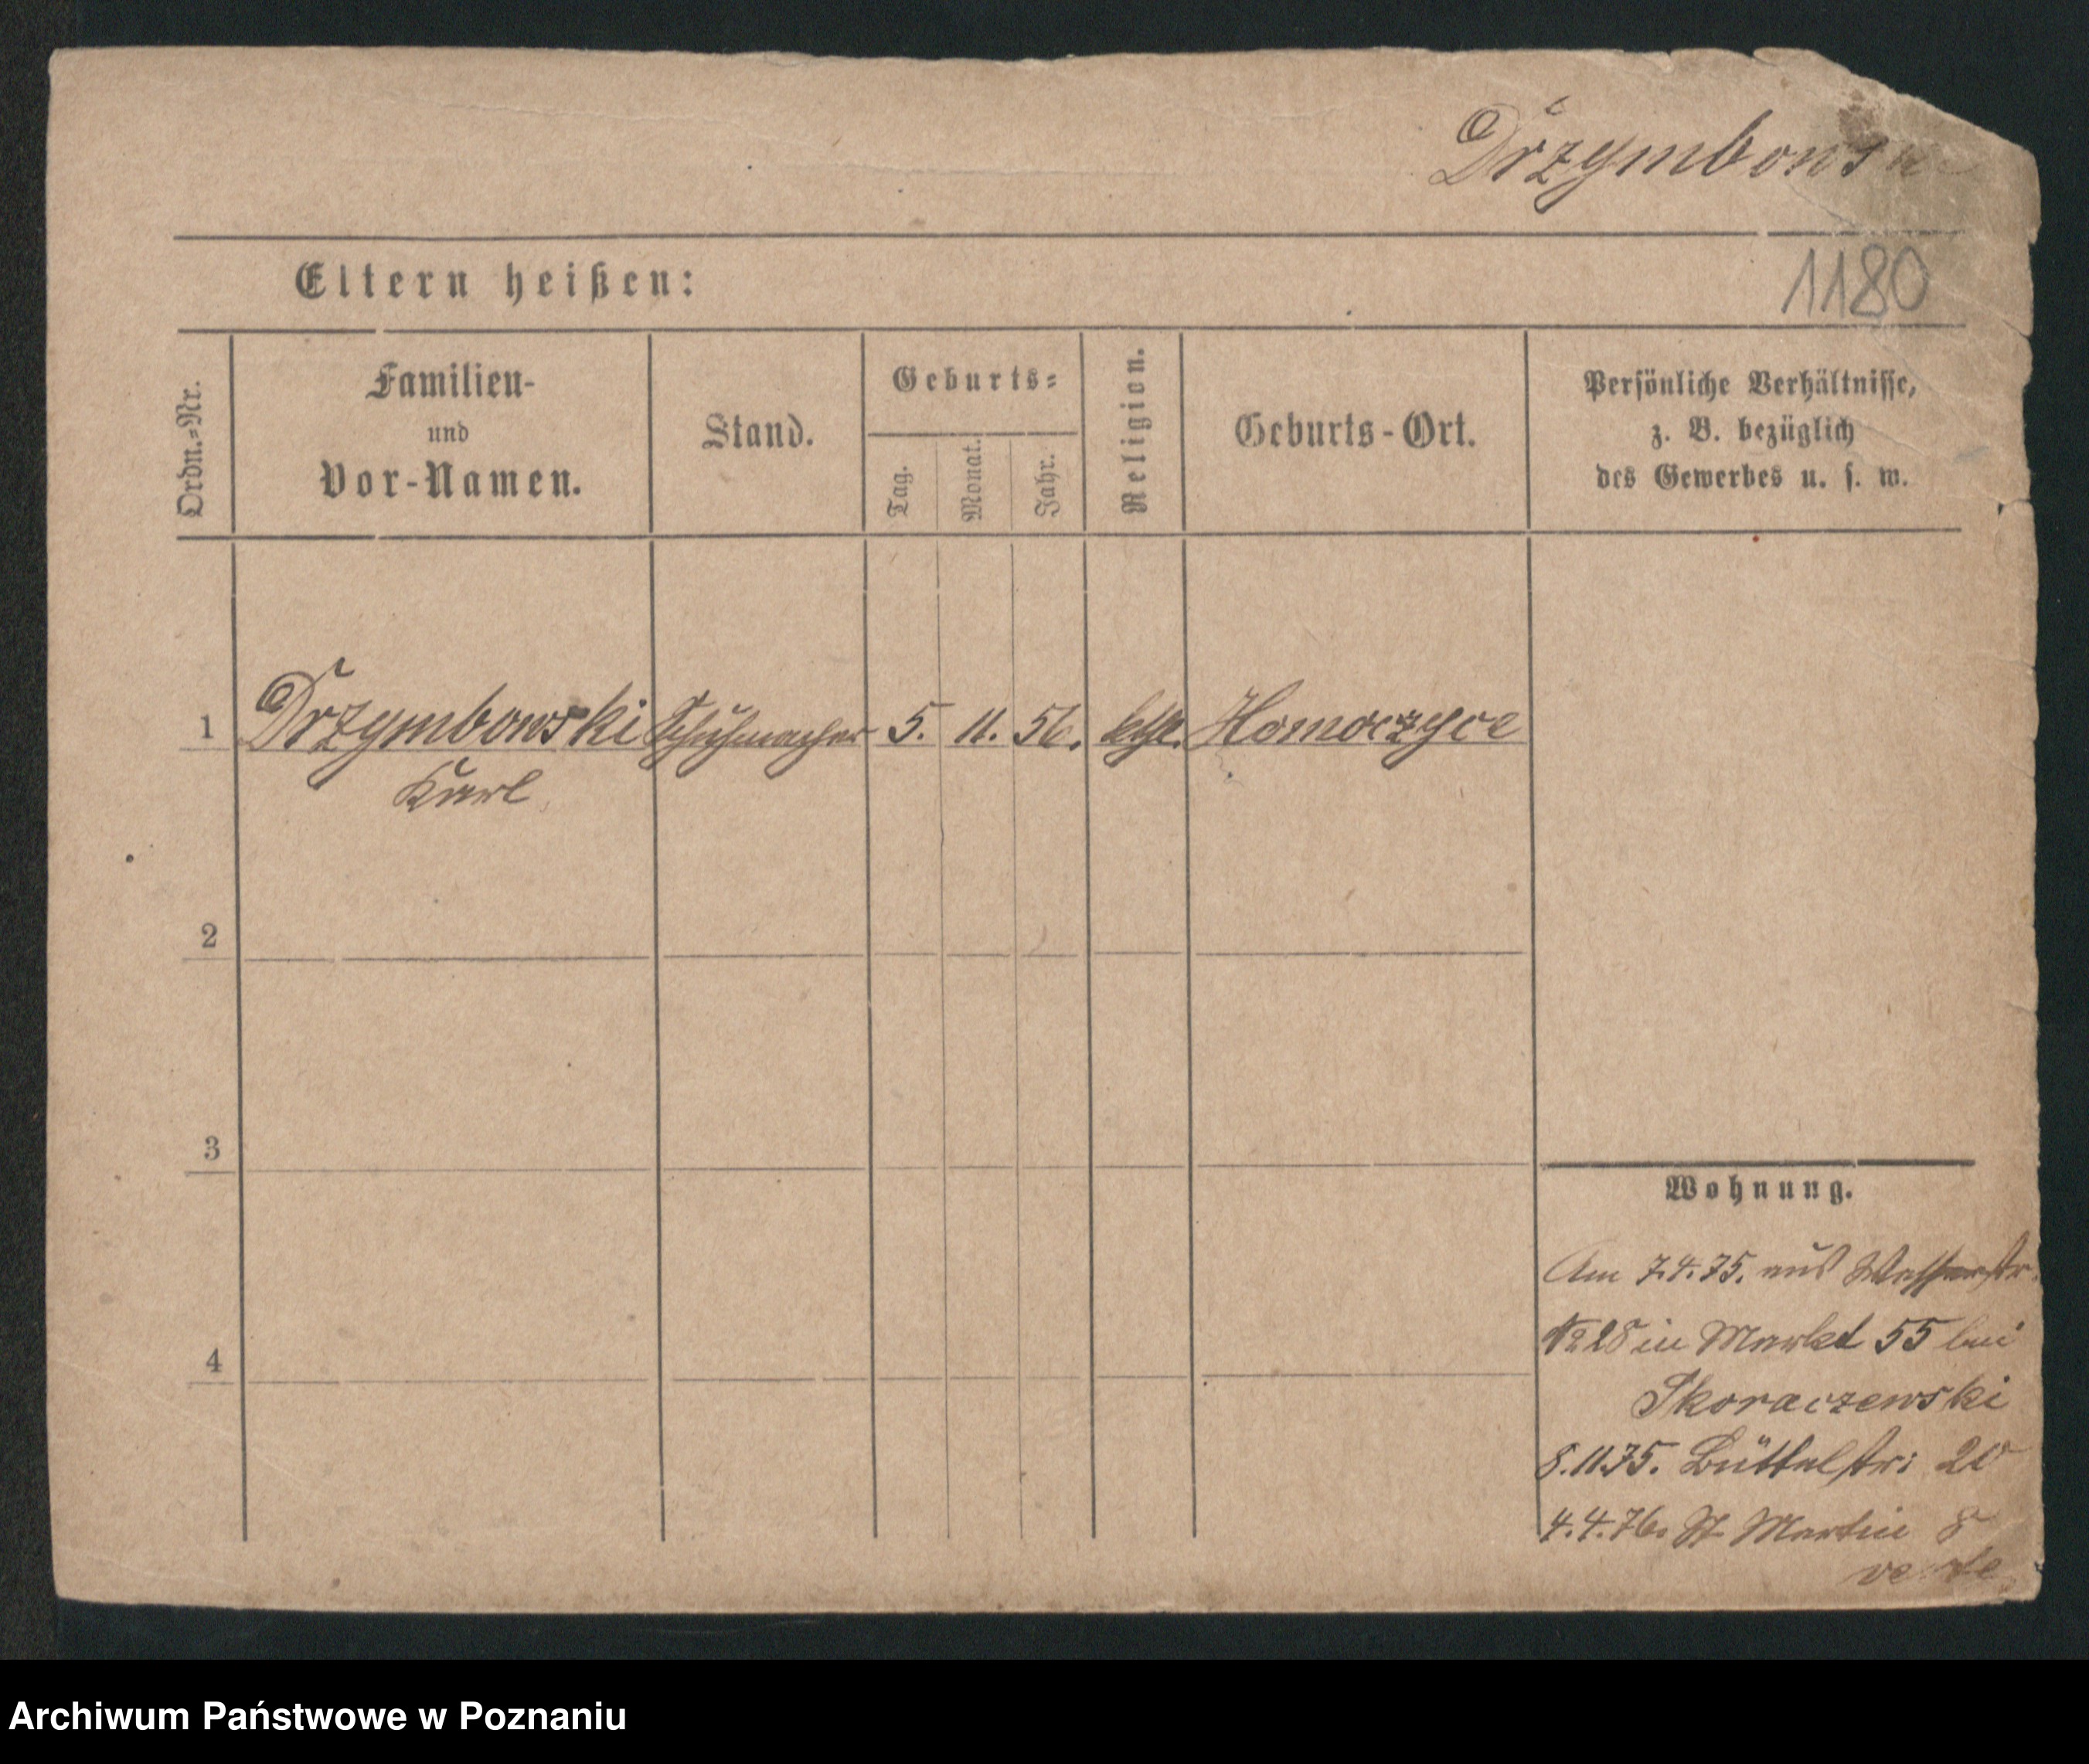 Drzymbowski
1180
Eltern heißen:
Ordn.=Nr.
Familien-
und
Vor-Namen.
Stand.
Geburts=
Tag.
Monat.
Jahr.
Religion.
Geburts-Ort.
Persönliche Verhältnisse,
z. B. bezüglich
des Gewerbes u. s. w.
1 Drzymbowski Schuhmacher 5. 11. 56. kth. Homoczyce
Karl
2
3
4
Wohnung.
Am 7.4.75. aus Wasserstr.
No 28 in Markt 55 bei
Skoraczewski
8.11.75. Büttelstr: 20
4.4.76. St Martin 8
verte
Archiwum Państwowe w Poznaniu